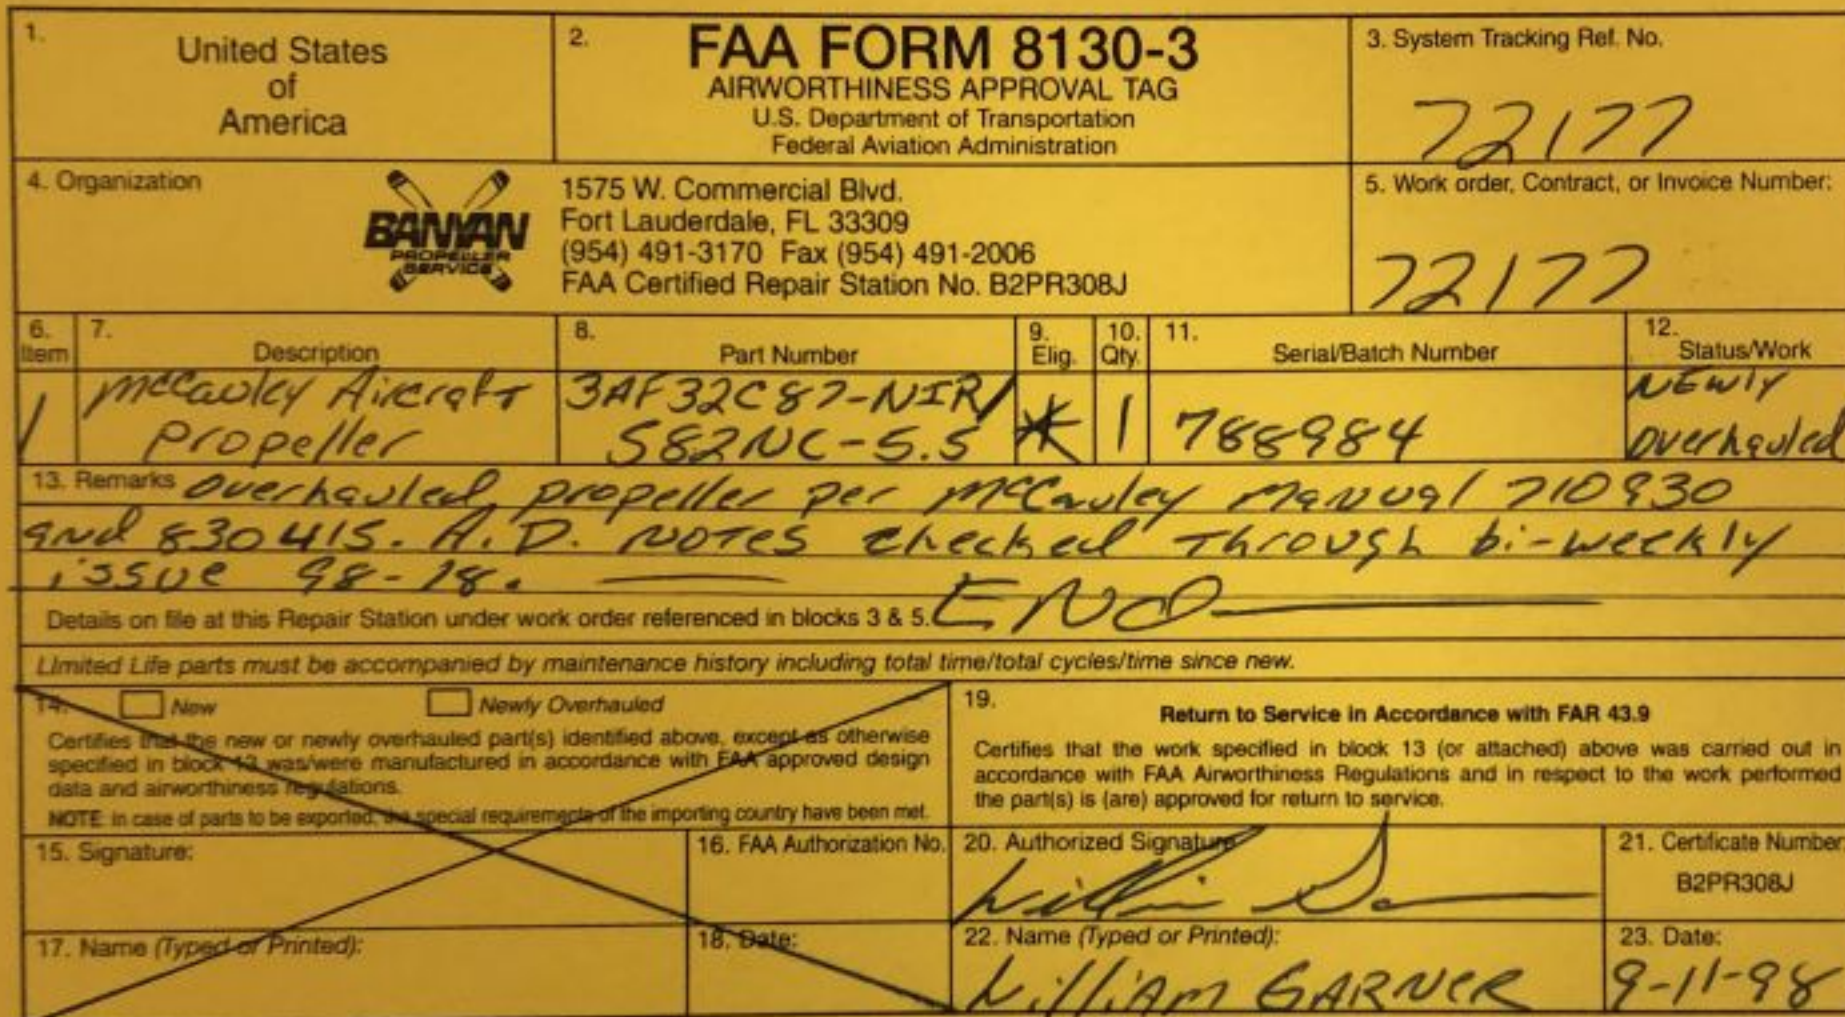 1.
United States
of
America
2.
FAA FORM 8130-3
AIRWORTHINESS APPROVAL TAG
U.S. Department of Transportation
Federal Aviation Administration
3. System Tracking Ref. No.
72177
4. Organization
BANYAN
PROPELLER
SERVICE
1575 W. Commercial Blvd.
Fort Lauderdale, FL 33309
(954) 491-3170 Fax (954) 491-2006
FAA Certified Repair Station No. B2PR308J
5. Work order, Contract, or Invoice Number:
72177
6.
Item
7.
Description
8.
Part Number
9.
Elig.
10.
Qty.
11.
Serial/Batch Number
12.
Status/Work
1
McCauley Aircraft
Propeller
3AF32C87-NIR/
S82NC-5.5
*
1
788984
NEwly
overhauled
13. Remarks overhauled propeller per McCauley Manual 710930
and 830415. A.D. NOTES checked Through bi-weekly
issue 98-18. END
Details on file at this Repair Station under work order referenced in blocks 3 & 5.
Limited Life parts must be accompanied by maintenance history including total time/total cycles/time since new.
14. New Newly Overhauled
Certifies that the new or newly overhauled part(s) identified above, except as otherwise
specified in block 13 was/were manufactured in accordance with FAA approved design
data and airworthiness regulations.
NOTE: in case of parts to be exported, the special requirements of the importing country have been met.
15. Signature:
16. FAA Authorization No.
17. Name (Typed or Printed):
18. Date:
19.
Return to Service in Accordance with FAR 43.9
Certifies that the work specified in block 13 (or attached) above was carried out in
accordance with FAA Airworthiness Regulations and in respect to the work performed
the part(s) is (are) approved for return to service.
20. Authorized Signature
21. Certificate Number:
B2PR308J
22. Name (Typed or Printed):
William GARNER
23. Date:
9-11-98